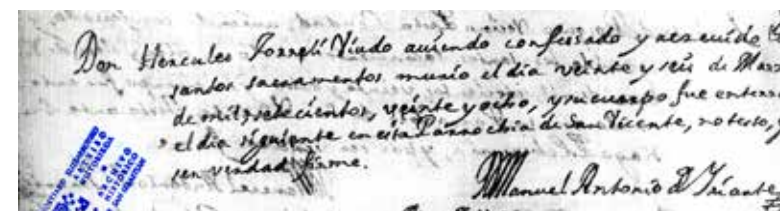 Don Hercules Torrelí Viudo auiendo confessado y receuido
santos sacramentos murio el dia veinte y seis de Mar
de mil setecientos, veinte y ocho, y su cuerpo fue enterr
el dia siguiente en esta Parrochia de San Vicente, no testo, y
en verdad firme.
Manuel Antonio D Yriarte
ARCHIVO
HISTORICO